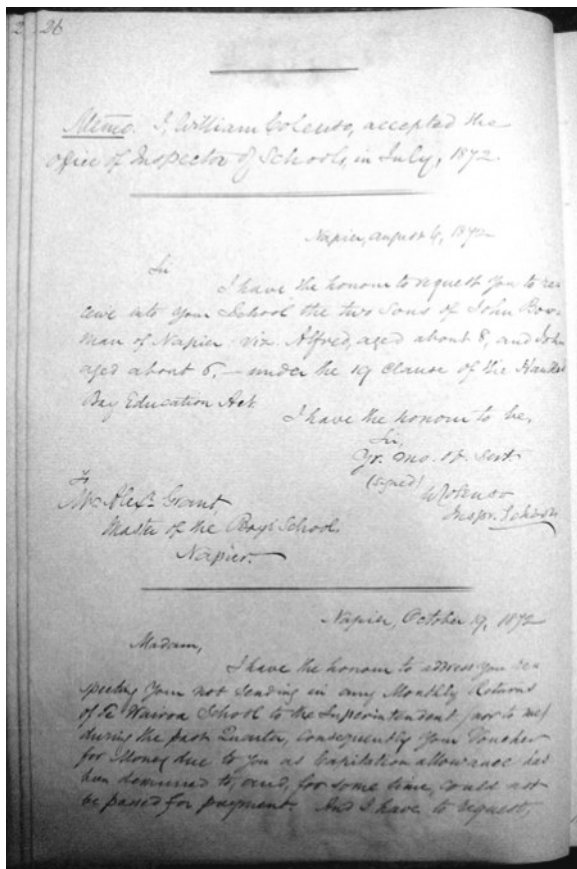 26
Memo. I, William Colenso, accepted the
office of Inspector of Schools, in July, 1872.
Napier, August 6, 1872
Sir
I have the honour to request you to re-
ceive into your School the two sons of John Bow-
man of Napier viz. Alfred, aged about 8, and John
aged about 6, — under the 19 Clause of the Hawkes
Bay Education Act.
I have the honour to be,
Sir,
Yr. mo. ob. Servt.
(signed) W Colenso
Inspr. Schools
To
Mr. Alexr. Grant,
Master of the Boys' School,
Napier.
Napier, October 19, 1872
Madam,
I have the honour to address you re-
specting your not sending in any Monthly Returns
of Te Wairoa School to the Superintendent (nor to me)
during the past Quarter, consequently your Voucher
for Money due to you as Capitation allowance has
been demurred to, and, for some time, could not
be passed for payment. And I have to request,